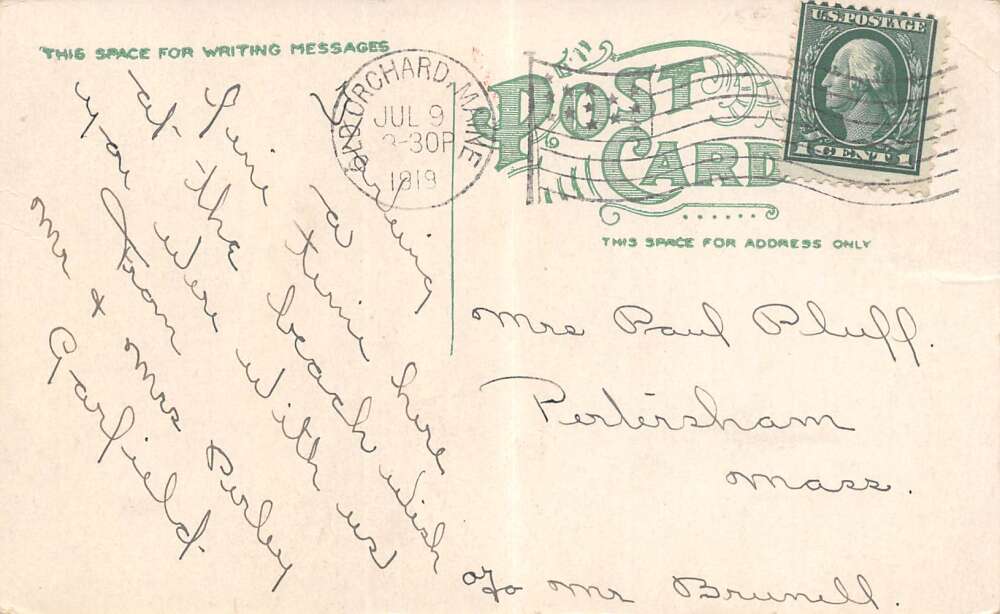 THIS SPACE FOR WRITING MESSAGES
Having
fine a time here
at the beach wish
you were with us
from
Mr & Mrs Perley
Garfield.
OLD ORCHARD, MAINE
JUL 9
-30P
1919
POST
CARD
U.S. POSTAGE
1 CENT 1
THIS SPACE FOR ADDRESS ONLY
Mrs Paul Pluff.
Petersham
Mass.
c/o Mr Brunell.